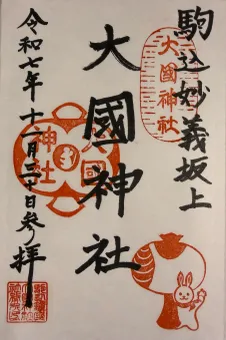 駒込妙義坂上
大國神社
大國神社
大國神社
令和七年十二月三十日参拝